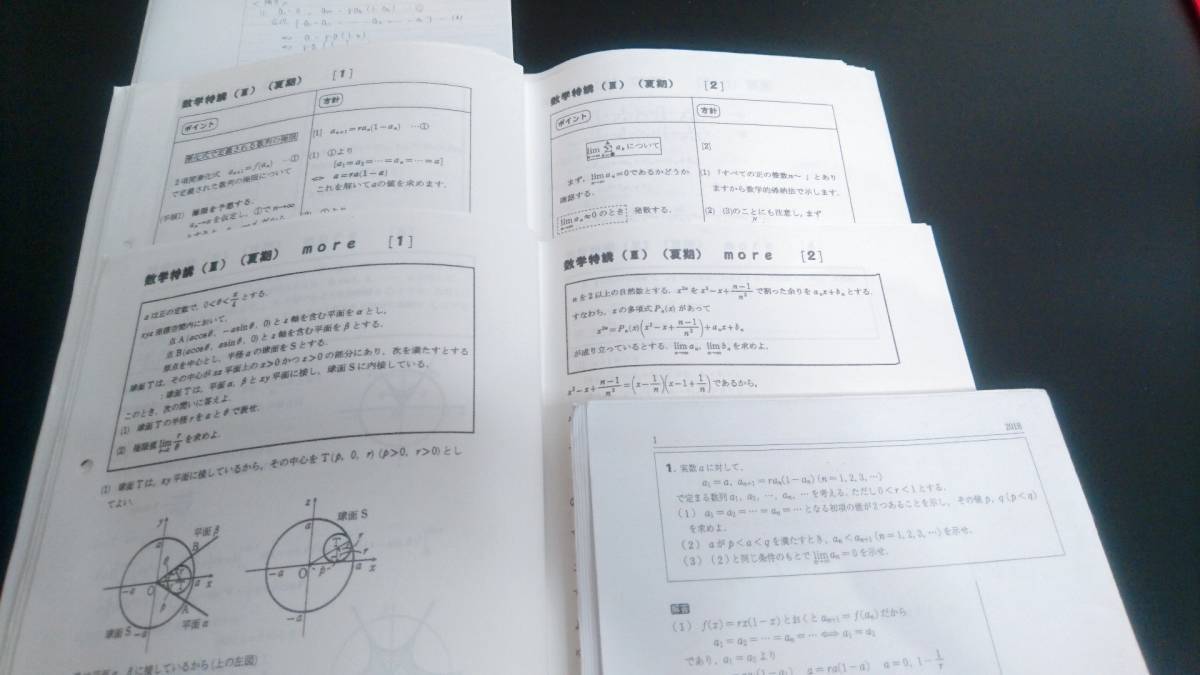 数学特講(Ⅲ)(夏期) [1]
ポイント
方針
漸化式で定義される数列の極限
2項間漸化式 aₙ₊₁=f(aₙ) …①
で定義された数列の極限について
(手順1) 極限を予想する.
[1] aₙ₊₁=raₙ(1-aₙ) …①
(1) ①より
[a₁=a₂=…=aₙ=…=a]
⇔ a=ra(1-a)
これを解いてaの値を求めます.
数学特講(Ⅲ)(夏期) [2]
ポイント
方針
まず, lim aₙ=0であるかどうか
n→∞
確認する.
lim aₙ≠0のとき 発散する.
[2]
(1) 「すべての正の整数n〜」とあり
ますから数学的帰納法で示します.
(2) (3)のことにも注意し, まず
数学特講(Ⅲ)(夏期) more [1]
aは正の定数で, 0<θ<π/4とする.
xyz座標空間内において,
点A(acosθ, -asinθ, 0)とz軸を含む平面をαとし,
点B(acosθ, asinθ, 0)とz軸を含む平面をβとする.
原点を中心とし, 半径aの球面をSとする.
球面Tは, その中心がxz平面上のx>0かつz>0の部分にあり, 次を満たすとする
:球面Tは, 平面α, βとxy平面に接し, 球面Sに内接している.
このとき, 次の問いに答えよ.
(1) 球面Tの半径rをaとθで表せ.
(2) 極限値 lim r/θ を求めよ.
(1) 球面Tは, xy平面に接しているから, その中心をT(p, 0, r)(p>0, r>0)とし
てよい.
y
平面β
a
B
-a
O
a
x
A
平面α
球面S
-a
z
球面S
a
T
r
-a
O
p
a
x
-a
に接しているから(上の左図)
数学特講(Ⅲ)(夏期) more [2]
nを2以上の自然数とする. x²ⁿをx²-x+(n-1)/n²で割った余りをaₙx+bₙとする.
すなわち, xの多項式Pₙ(x)があって
x²ⁿ=Pₙ(x)(x²-x+(n-1)/n²)+aₙx+bₙ
が成り立っているとする. lim aₙ, lim bₙを求めよ.
x²-x+(n-1)/n²=(x-1/n)(x-1+1/n)であるから,
1
2018
1. 実数aに対して,
a₁=a, aₙ₊₁=raₙ(1-aₙ)(n=1,2,3,…)
で定まる数列a₁, a₂, …, aₙ, …を考える. ただし0<r<1とする.
(1) a₁=a₂=…=aₙ=…となる初項の値が2つあることを示し, その値p, q(p<q)
を求めよ.
(2) aがp<a<qを満たすとき, aₙ<aₙ₊₁(n=1,2,3,…)を示せ.
(3) (2)と同じ条件のもとでlim aₙ=0を示せ.
解答
(1) f(x)=rx(1-x)とおくとaₙ₊₁=f(aₙ)だから
a₁=a₂=…=aₙ=…⇔a₁=a₂
であり, a₁=a₂より
a=ra(1-a) a=0, 1-1/r